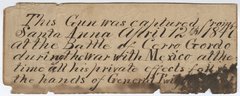 This Gun was captured from
Santa Anna April 12th 184
at the Battle of Cerro Gordo
during the war with Mexico at the
time all his private effects fell
the hands of General